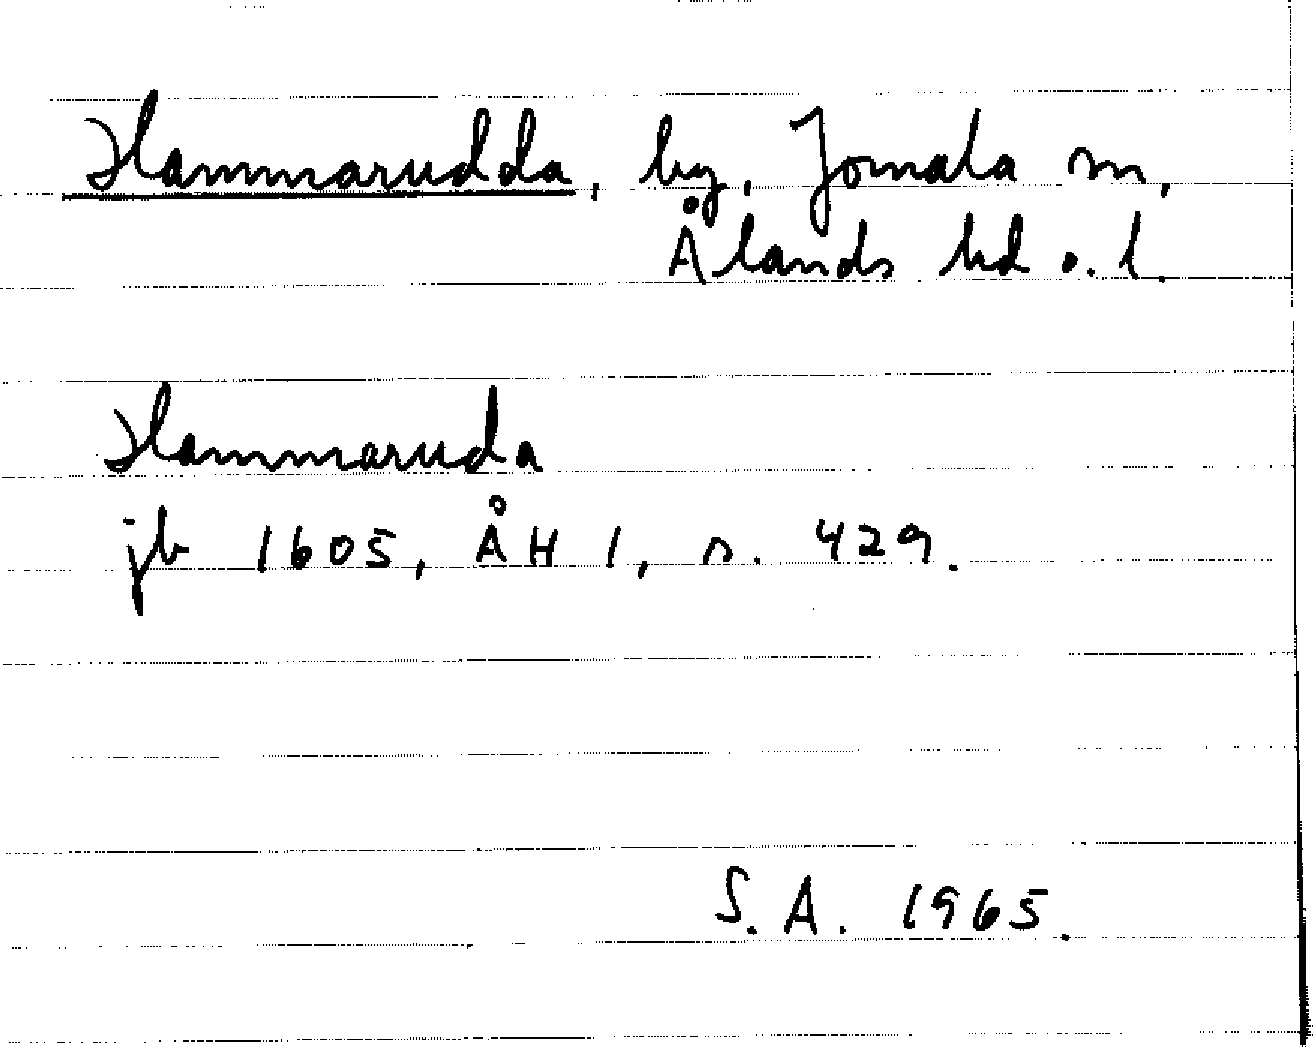 Hammarudda, by, Jomala sn,
Ålands hd o. l.
Hammaruda
jb 1605, ÅH 1, s. 429.
S.A. 1965.